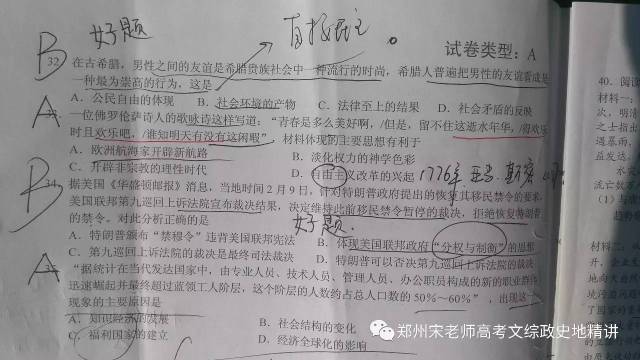 好题
直接民主。
试卷类型：A
B
32 在古希腊，男性之间的友谊是希腊贵族社会中一种流行的时尚，希腊人普遍把男性的友谊看成是
一种最为崇高的行为，这是
A．公民自由的体现 B．社会环境的产物 C．法律至上的结果 D．社会矛盾的反映
A
一位佛罗伦萨诗人的歌咏诗这样写道：“青春是多么美好啊，/但是，留不住这逝水年华，/前欢
时且欢乐吧，/谁知明天有没有这闲暇” 材料体现的主要思想有利于
A．欧洲航海家开辟新航路 B．淡化权力的神学色彩
C．开辟非宗教的理性时代 D．自由主义改革的兴起
1776年
B
34 据美国《华盛顿邮报》消息，当地时间2月9日，针对特朗普政府提出的恢复其移民禁令的要求，
美国联邦第九巡回上诉法院宣布裁决结果，决定维持此前移民禁令暂停的裁决，拒绝恢复特朗普
的禁令。对此分析正确的是
好题．
A．特朗普颁布“禁穆令”违背美国联邦宪法 B．体现美国联邦政府“分权与制衡”的思想
C．第九巡回上诉法院的裁决是最终司法裁决 D．特朗普可以否决第九巡回上诉法院的裁决
A
“据统计在当代发达国家中，由专业人员、技术人员、管理人员、办公职员构成的新的职业群体
迅速崛起并最终超过蓝领工人阶层，这个阶层的人数约占总人口数的50%～60%”，出现这
现象的主要原因是
A．知识经济的发展 B．社会结构的变化
C．福利国家的建立 D．经济全球化的影响
40．阅读
材料一：
材料二．
郑州宋老师高考文综政史地精讲